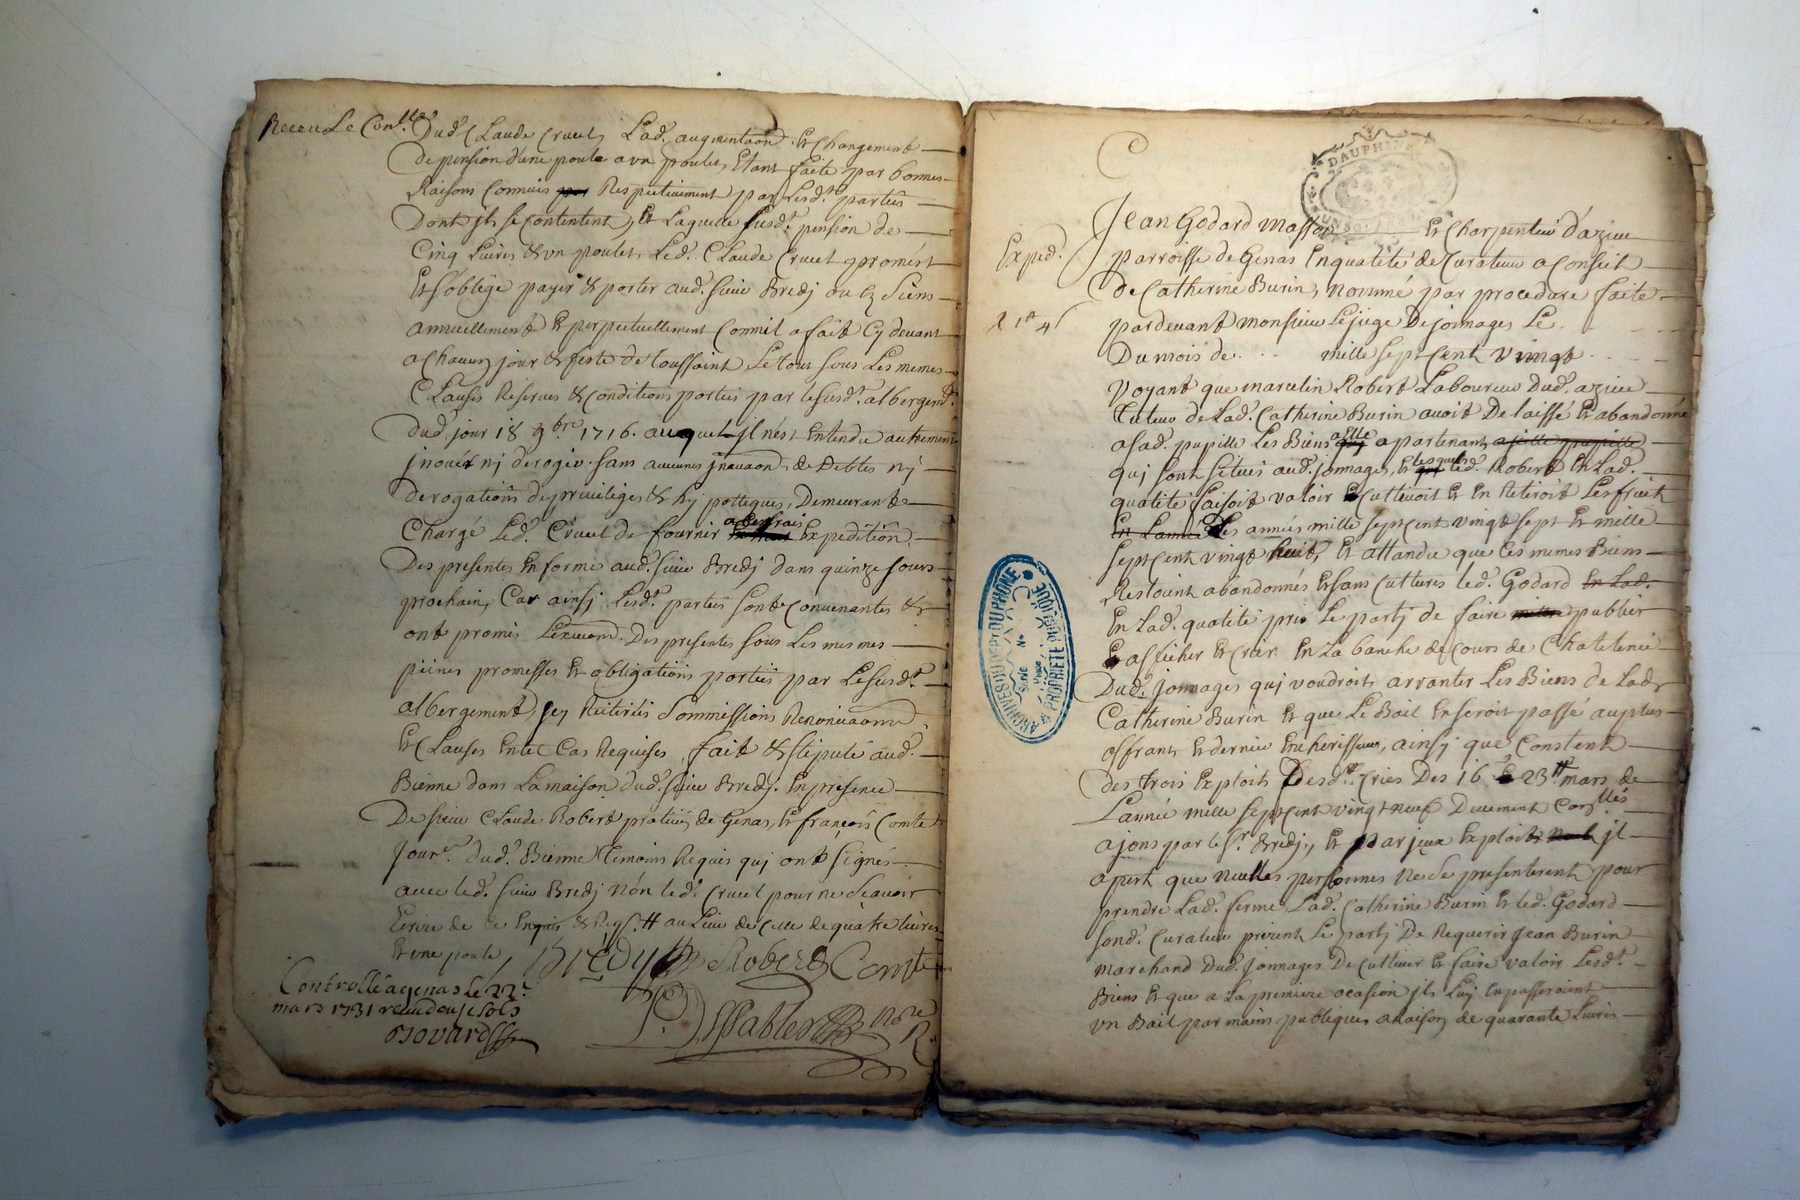 Receu Le Con.lle
Dud. Claude Cruel, Lad. augmentaon. Et Changement
de pension d'une poule a un poulet, Etant faite par bonnes
Raisons Connuis Respectivement par Lesd. parties
Dont jls se contentent, Et Laquelle susd. pension de
Cinq Livres & un poulet, Led. Claude Cruel promest
Et s'oblige payer & porter aud. sieur Bredy ou Es Siens
annuellement Et perpetuellement Comm'il a fait Cy devant
a Chacun jour & feste de Toussaint Le tout sous Les memes
Clauses Reserves & Conditions porties par le susd. albergemt.
dud. jour 18 9bre 1716. auquel jl n'est Entendu autrement
jnover nj deroger sans aucunes jnovaon. de Debtes nj
derogations de privileges & hypotteques, Demeurant
Chargé Led. Cruel de fournir a des frais Expedition
Des presentes En forme aud. sieur Bredj dans quinze jours
prochain, Car ainsj Lesd. parties sont Convenantes &
ont promis Des presentes sous Les mesmes
peines promesses Et obligations porties par Le susd.
albergement, Reiteriés Sommissions Renonciaons
Et Clauses En tel Cas Requises, fait & stipulé aud.
Bienne dans La maison dud. sieur Bredj. En presence
De sieur Claude Robert pratiicj de Genas, Et françois Comte
Jour.er dud. Bienne Temoins Requis qui ont signés
avec led. sieur Bredj non led. Cruel pour ne Scavoir
Ecrire de ce Enquis & Req.s au Lieu de Celle de quatre livres
Et une poule, Bredy Robert Comte
Controllé a genas le 22e
mars 1731 receu douse sols
Bovard
No.re
R.
DAUPHINÉ
Jean Godard masson Et Charpentier d'azieu
Exped.
parroisse de Genas En qualité de Curateur a Conseil
De Catherine Burin, nommé par procedure faite
pardevant monsieur Le juge De jonnages Le
Du mois de . . . mille sept Cent vingt . . .
Voyant que marcelin Robert Laboureur Dud. azieu
Tuteur de Lad. Catherine Burin avoit Delaissé Et abandonné
a sad. pupille Les Biens a Elle apartenant a jcelle pupille
quj sont situés aud. jonnages, Et lesquels led. Robert En Lad.
qualité faisoit valoir Cultivoit Et En Retiroit Les fruits
En Lannée Les années mille sept cent vingt sept Et mille
sept cent vingt huit, Et attandu que Ces memes Biens
Restoint abandonnés Et sans Cultures led. Godard En Lad.
En Lad. qualité pris Le partj de faire publier
Et afficher Et Crier En La banche de Cours de Chatelenie
Dud. jonnages quj voudroit arranter Les Biens de Lad.
Catherine Burin Et que Le Bail En seroit passé au plus
offrant Et dernier Encherisseur, ainsj que Constent
Des trois Exploits Desd. Cries Des 16 & 23e mars de
L'année mille sept cent vingt neuf Duement Con.llés
a jons par le Sr. Bredj, Et par jceux Exploits jl
apert que nulles personnes ne se presenterent pour
prendre Lad. ferme, Lad. Catherine Burin Et led. Godard
sond. Curateur prirent Le partj De Requerir Jean Burin
marchand Dud. jonnages De Cultiver Et faire valoir Lesd.
Biens Et que a La premiere ocasion jls Luj En passeroient
un Bail par mains publiques a Raison de quarante Livres
ARCHIVES DU DEPT DU RHONE
PROPRIÉTÉ PUBLIQUE